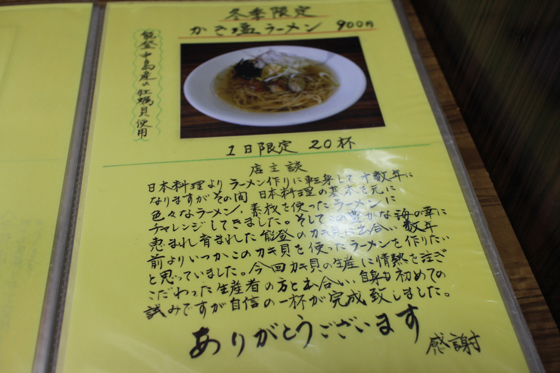 冬季限定
かき塩ラーメン 900円
能登中島産の牡蠣貝使用
1日限定 20杯
店主談
日本料理よりラーメン作りに転身して十数年に
なりますがその間 日本料理の基本を元に
色々なラーメン、素材を使ったラーメンに
チャレンジしてきました。そして の豊かな海の幸に
恵まれ育まれた能登のカキ貝に出合い 数年
前よりいつかこのカキ貝を使ったラーメンを作りたい
と思っていました。今回カキ貝の生産に情熱を注ぎ
こだわった生産者の方と出合い、自身も初めての
試みですが自信の一杯が完成致しました。
ありがとうございます
感謝